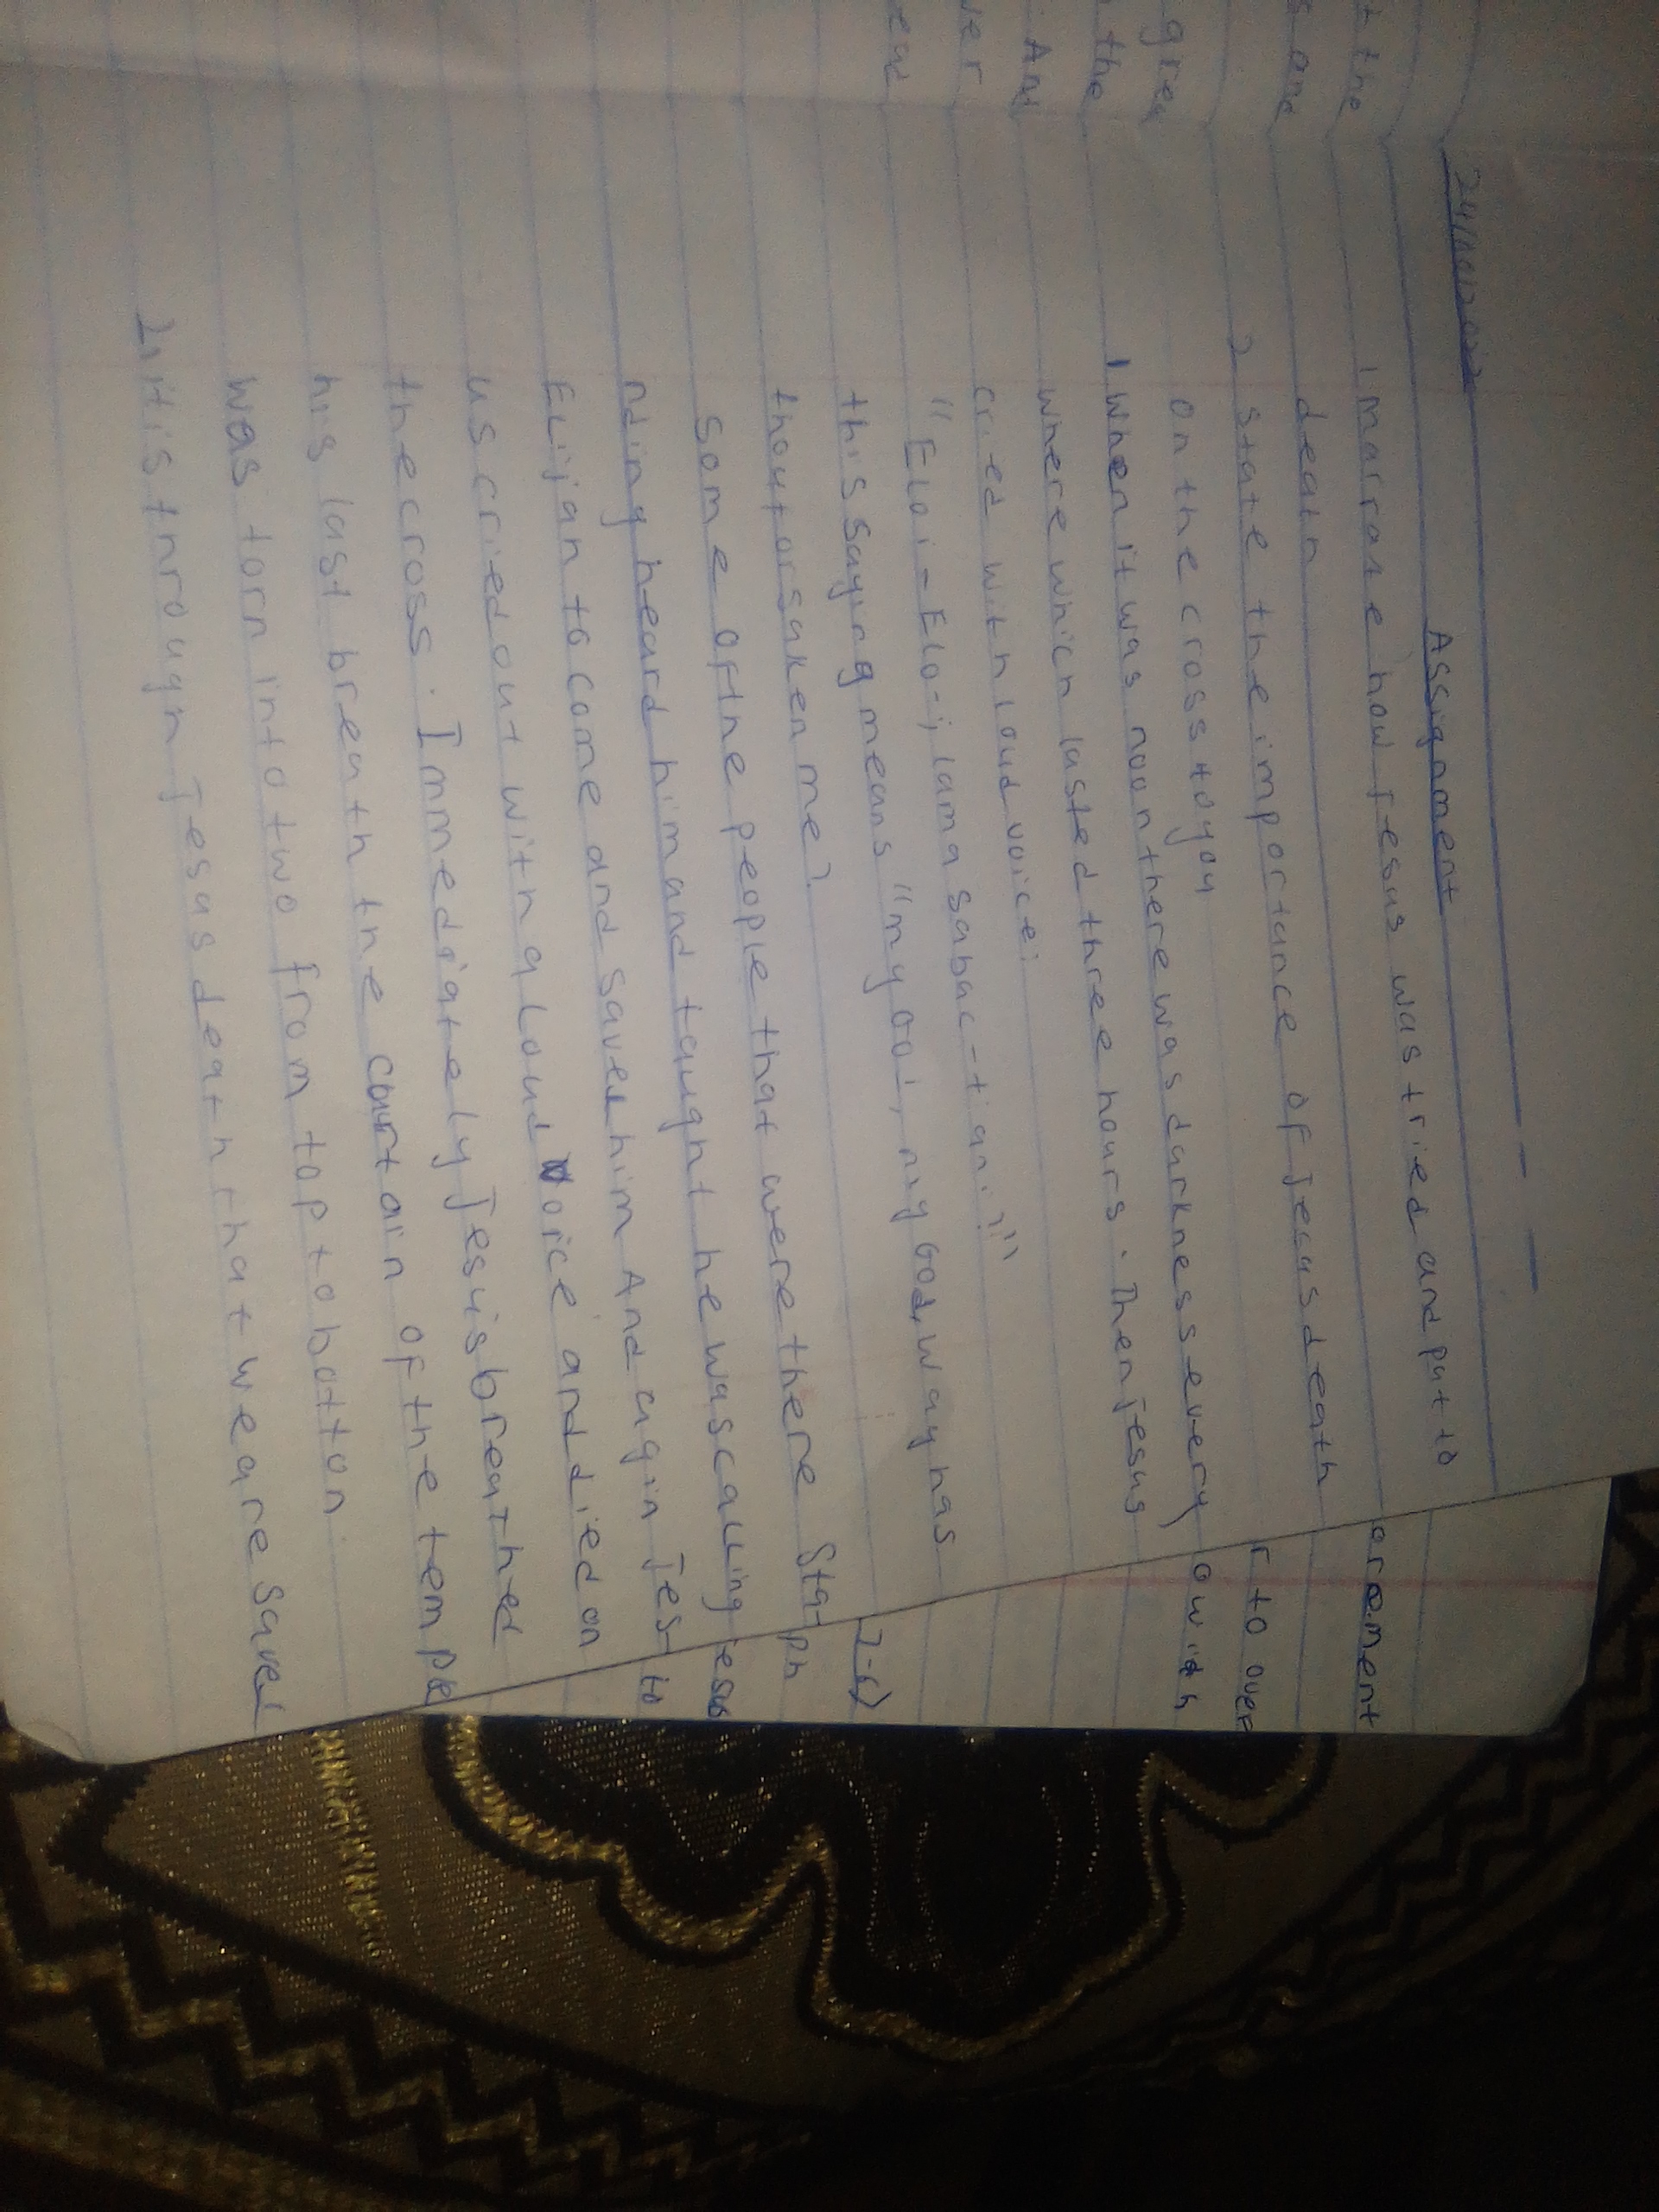 Assignment
1 marrate how Jesus was tried and put to
death
2 state the importance of Jecus death
on the cross to you
1 When it was noon there was darkness every
where which lasted three hours. Then Jesus
cried with loud voice:
"Eloi-Eloi, lama sabac-tiani?"
this saying means "my God, my God, way has
thou forsaken me?
Some of the people that were there sta-
nding heard him and taught he was calling
Elijah to come and saved him And again Jes-
us cried out with a loud voice and died on
the cross. Immediately Jesus breathed
his last breath the curtain of the temple
was torn into two from top to botton
2. it is through Jesus death that we are saved
t the
s one
grea
the
And
ver
r to over
owith
2-6)
ph
esus
to